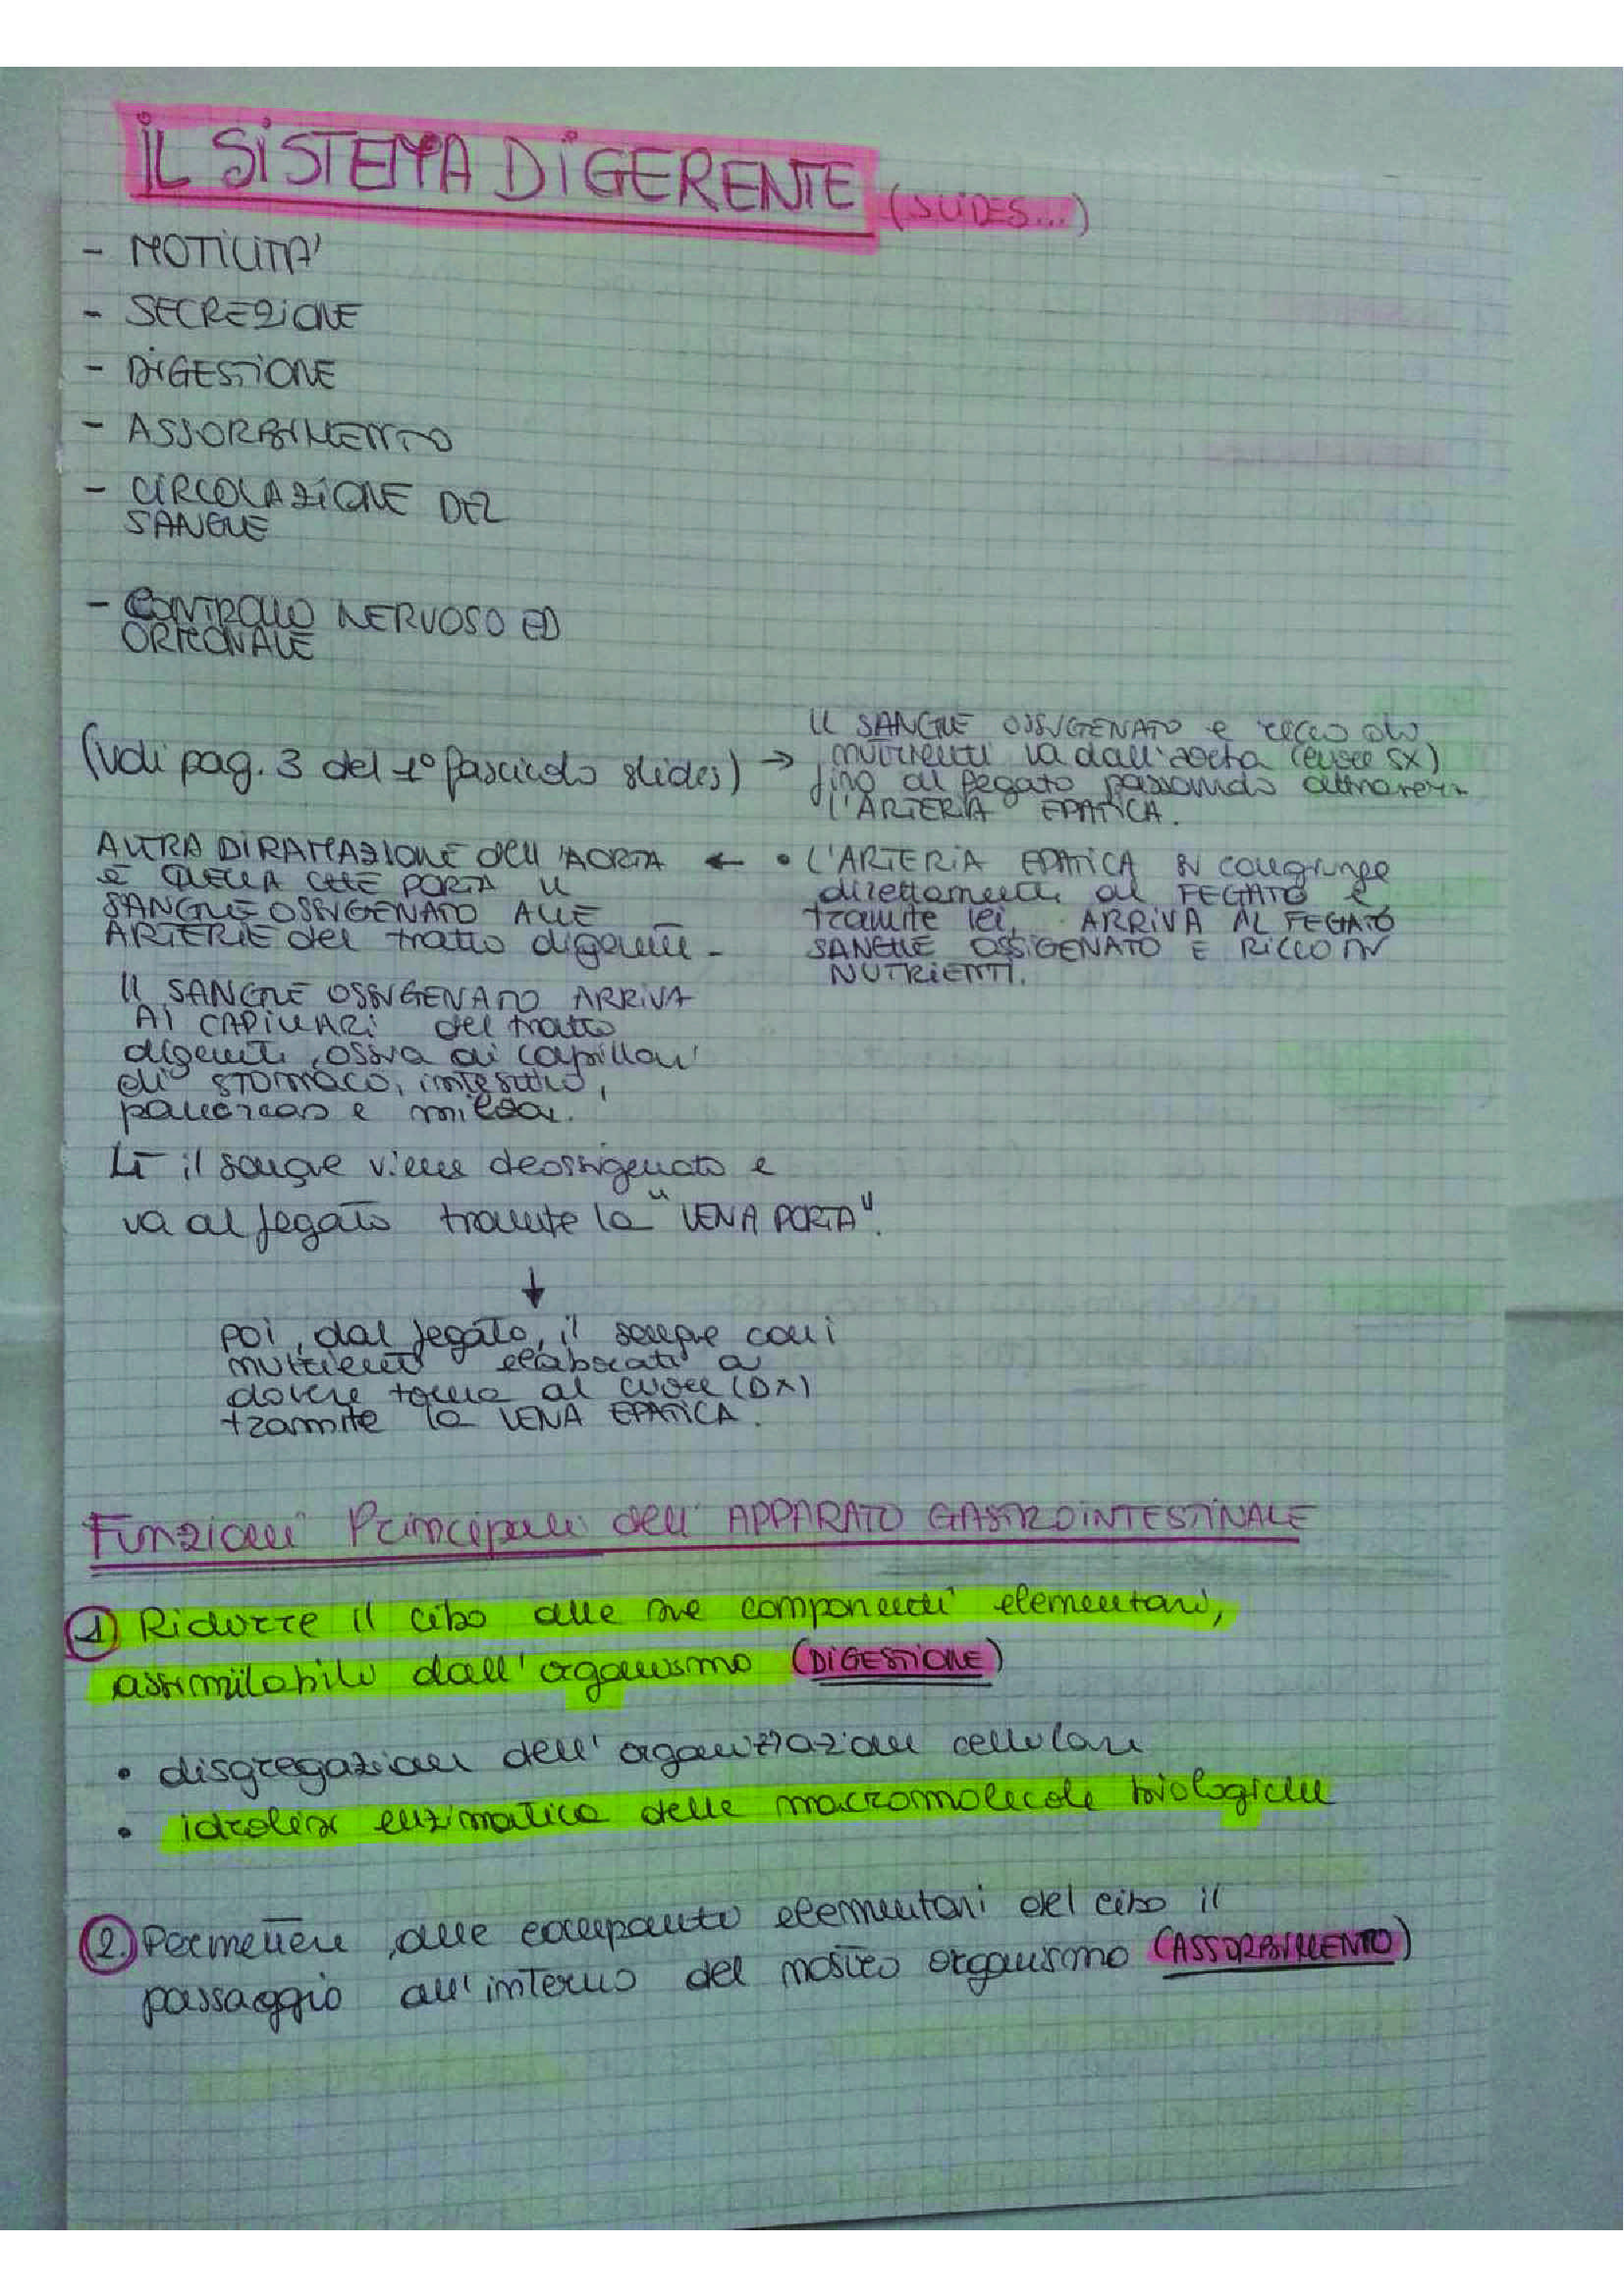 IL SISTEMA DIGERENTE (SLIDES...)
- MOTILITA'
- SECREZIONE
- DIGESTIONE
- ASSORBIMENTO
- CIRCOLAZIONE DEL
SANGUE
- CONTROLLO NERVOSO ED
ORMONALE
(vedi pag. 3 del 1° fascicolo slides) →
IL SANGUE OSSIGENATO e ricco di
nutrienti va dall'aorta (cuore SX)
fino al fegato passando attraverso
l'ARTERIA EPATICA.
• L'ARTERIA EPATICA si congiunge
direttamente al FEGATO e
tramite lei, ARRIVA AL FEGATO
SANGUE OSSIGENATO E RICCO IN
NUTRIENTI.
ALTRA DIRAMAZIONE dell'AORTA ←
è QUELLA CHE PORTA il
SANGUE OSSIGENATO ALLE
ARTERIE del tratto digerente -
Il SANGUE OSSIGENATO ARRIVA
AI CAPILLARI del tratto
digerente, ossia ai capillari
di STOMACO, intestino,
pancreas e milza.
Lì il sangue viene deossigenato e
va al fegato tramite la "VENA PORTA".
↓
poi, dal fegato, il sangue con i
nutrienti elaborati a
dovere torna al cuore (DX)
tramite la VENA EPATICA.
Funzioni Principali dell'APPARATO GASTROINTESTINALE
1) Ridurre il cibo alle sue componenti elementari,
assimilabili dall'organismo (DIGESTIONE)
• disgregazione dell'organizzazione cellulare
• idrolisi enzimatica delle macromolecole biologiche
2. Permettere alle componenti elementari del cibo il
passaggio all'interno del nostro organismo (ASSORBIMENTO)